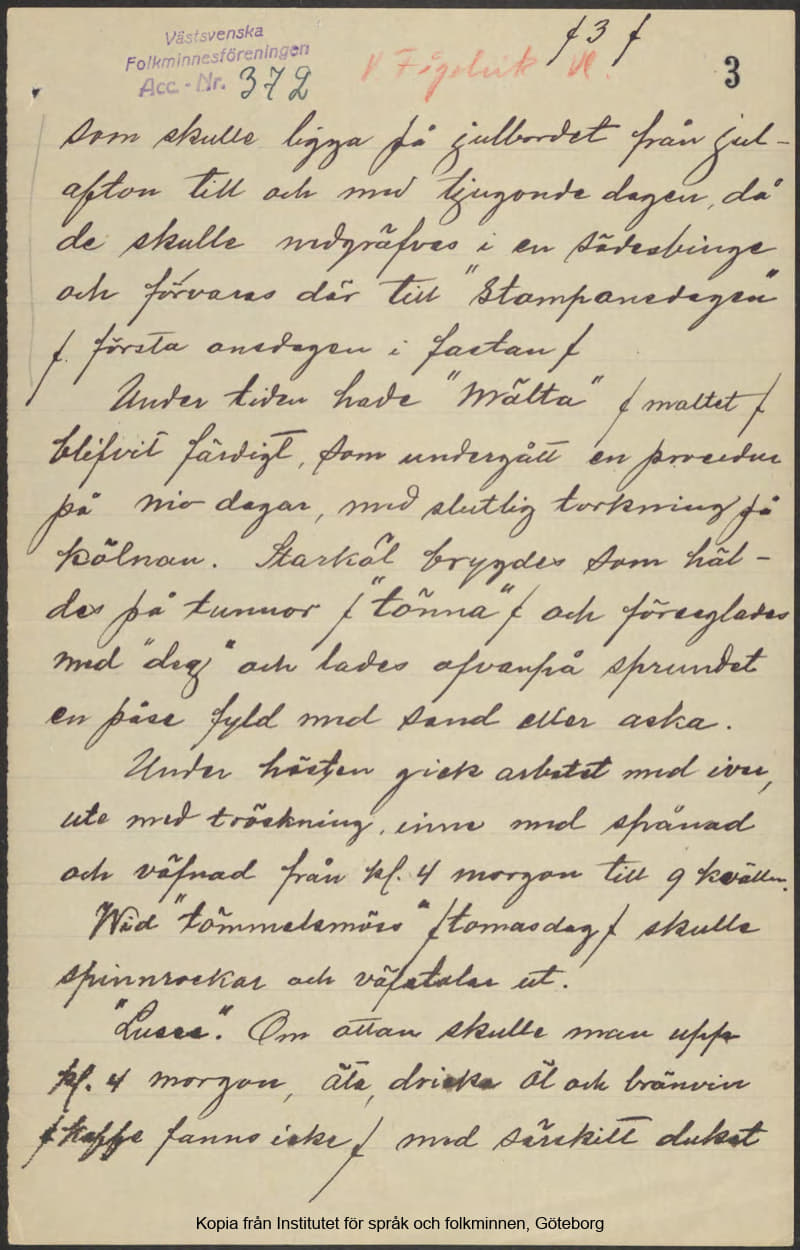 Västsvenska
Folkminnesföreningen
Acc. - Nr. 372
/ 3 /
V. Fågelvik Vl.
3
som skulle ligga på julbordet från jul-
afton till och med tjugonde dagen, då
de skulle nedgräfvas i en sädesbinge
och förvaras där till "Stampaonsdagen"
/ första onsdagen i fastan /
Under tiden hade "Mälta" / maltet /
blifvit färdigt, som undergått en procedur
på nio dagar, med slutlig torkning på
kölnan. Starköl brygdes som häl-
des på tunnor / "tönna" / och förseglades
med "deg" och lades ofvanpå sprundet
en påse fyld med sand eller aska.
Under hösten gick arbetet med iver,
ute med tröskning, inne med spånad
och väfnad från kl. 4 morgon till 9 kvällen.
Wid "tömmelsmöss" / tomasdag / skulle
spinnrockar och väfstolar ut.
"Lusse". Om ottan skulle man upp
kl. 4 morgon, äta, dricka öl och bränvin
/ kaffe fanns icke / med särskilt dukat
Kopia från Institutet för språk och folkminnen, Göteborg